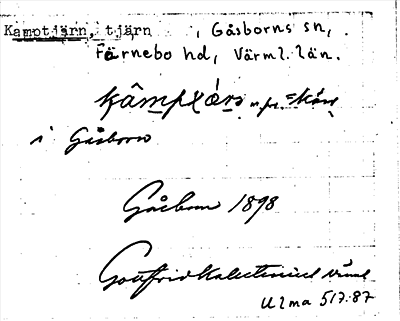 Kamptjärn, tjärn, Gåsborns sn,
Färnebo hd, Värml. län.
i Gåsborn
Gåsborn 1898
Gottfrid Kallstenius
Ulma 517:87